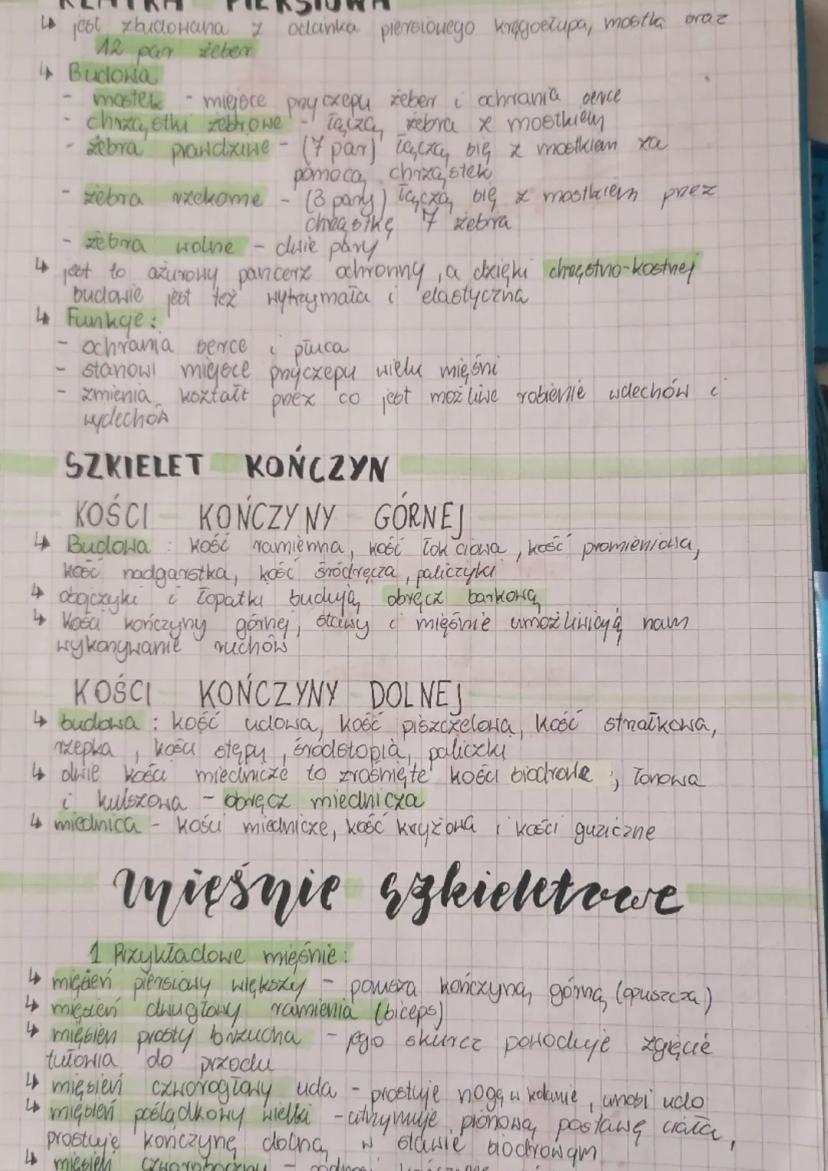 KLATKA PIERSIOWA
↳ jest zbudowana z odcinka piersiowego kręgosłupa, mostka oraz
12 par żeber
↳ Budowa
- mostek - miejsce przyczepu żeber i ochrania serce
- chrząstki żebrowe - łączą żebra z mostkiem
- żebra prawdziwe - (7 par) łączą się z mostkiem za
pomocą chrząstek
- żebra rzekome - (3 pary) łączą się z mostkiem przez
chrząstkę 7 żebra
- żebra wolne - dwie pary
↳ jest to ażurowy pancerz ochronny, a dzięki chrzęstno-kostnej
budowie jest też wytrzymała i elastyczna
↳ Funkcje:
- ochrania serce i płuca
- stanowi miejsce przyczepu wielu mięśni
- zmienia kształt przez co jest możliwe robienie wdechów i
wydechów
SZKIELET KOŃCZYN
KOŚCI KOŃCZYNY GÓRNEJ
↳ Budowa: kość ramienna, kość łokciowa, kość promieniowa,
kość nadgarstka, kość śródręcza, paliczyki
↳ obojczyki i łopatki budują obręcz barkową
↳ Kości kończyny górnej, stawy i mięśnie umożliwiają nam
wykonywanie ruchów
KOŚCI KOŃCZYNY DOLNEJ
↳ budowa: kość udowa, kość piszczelowa, kość strzałkowa,
rzepka, kości stępu, śródstopia, paliczki
↳ dwie kości miednicze to zrośnięte kości biodrowe, łonowa
i kulszowa - obręcz miednicza
↳ miednica - kości miednicze, kość krzyżowa i kości guziczne
mięśnie szkieletowe
1 Przykładowe mięśnie:
↳ mięsień piersiowy większy - porusza kończyną górną (opuszcza)
↳ mięsień dwugłowy ramienia (biceps)
↳ mięsień prosty brzucha - jego skurcz powoduje zgięcie
tułowia do przodu
↳ mięsień czworogłowy uda - prostuje nogę w kolanie, unosi udo
↳ mięsień pośladkowy wielki - utrzymuje pionową postawę ciała,
prostuje kończynę dolną w stawie biodrowym
↳ mięsień czworoboczny -